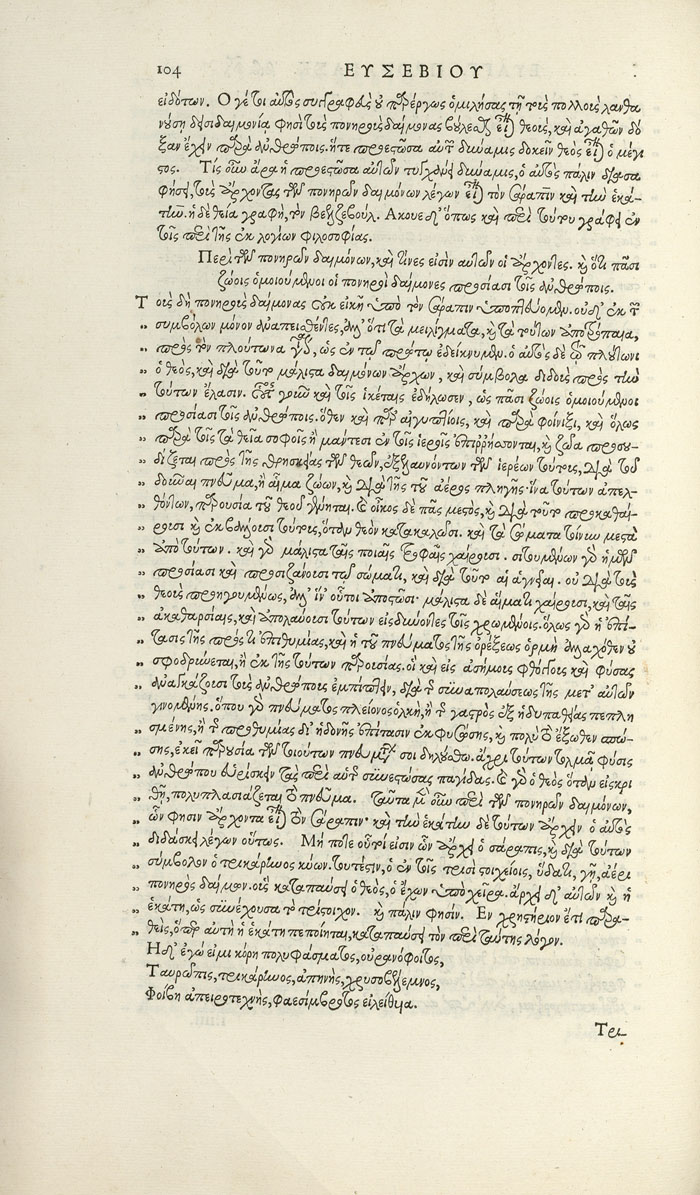 104 ΕΥΣΕΒΙΟΥ
εἰδότων. Ὁ γέ τοι αὐτὸς συγγραφεὺς οὐ παρέργως ὁμιλήσας τῇ τοὺς πολλοὺς λανθα
νούσῃ δεισιδαιμονίᾳ φησὶ τοὺς πονηροὺς δαίμονας βούλεσθαι εἶναι θεοὺς, καὶ ἀγαθῶν δό
ξαν ἔχειν παρὰ ἀνθρώποις. ἥτε προεστῶσα αὐτῶν δύναμις δοκεῖν θεὸς εἶναι ὁ μέγι
στος. Τίς οὖν ἄρα ἡ προεστῶσα αὐτῶν τυγχάνει δύναμις, ὁ αὐτὸς πάλιν διασα
φήσει, τοὺς ἄρχοντας τῶν πονηρῶν δαιμόνων λέγων εἶναι τὸν σάραπιν καὶ τὴν ἑκά-
την. ἡ δὲ θεία γραφὴ, τὸν βεελζεβούλ. Ἄκουε δ' ὅπως καὶ περὶ τούτου γράφει ἐν
τοῖς περὶ τῆς ἐκ λογίων φιλοσοφίας.
Περὶ τῶν πονηρῶν δαιμόνων, καὶ τίνες εἰσὶν αὐτῶν οἱ ἄρχοντες. καὶ ὅτι πᾶσι
ζώοις ὁμοιούμενοι οἱ πονηροὶ δαίμονες προσίασι τοῖς ἀνθρώποις.
Τοὺς δὴ πονηροὺς δαίμονας οὐκ εἰκῆ ὑπὸ τὸν σάραπιν ὑποπτεύομεν. οὐδ' ἐκ τῶν
„ συμβόλων μόνον ἀναπεισθέντες, ἀλλ' ὅτι τὰ μειλίγματα, καὶ τὰ τούτων ἀποτρόπαια,
„ πρὸς τὸν πλούτωνα γίνεται, ὡς ἐν τῷ πρώτῳ ἐδείκνυμεν. ὁ αὐτὸς δὲ τῷ πλούτωνι
„ ὁ θεὸς, καὶ διὰ τοῦτο μάλιστα δαιμόνων ἄρχων, καὶ σύμβολα διδοὺς πρὸς τὴν
„ τούτων ἔλασιν. οὗτος γοῦν καὶ τοῖς ἱκέταις ἐδήλωσεν, ὡς πᾶσι ζώοις ὁμοιούμενοι
„ προσίασι τοῖς ἀνθρώποις. ὅθεν καὶ παρ' αἰγυπτίοις, καὶ παρὰ φοίνιξι, καὶ ὅλως
„ παρὰ τοῖς τὰ θεῖα σοφοῖς ἱμάντες ἐν τοῖς ἱεροῖς ἐπιῤῥήσσονται, καὶ ζῶα προσου-
„ δίζεται πρὸς τῆς θρησκείας τῶν θεῶν, ἐξελαυνόντων τῶν ἱερέων τούτους, διὰ τοῦ
„ δοῦναι πνεῦμα, ἢ αἷμα ζώων, καὶ διὰ τῆς τοῦ ἀέρος πληγῆς· ἵνα τούτων ἀπελ-
„ θόντων, παρουσία τοῦ θεοῦ γένηται. καὶ οἶκος δὲ πᾶς μεστὸς, καὶ διὰ τοῦτο προκαθαί-
„ ρουσι καὶ ἐκβάλλουσι τούτους, ὅταν θεὸν κατακαλῶσι. καὶ τὰ σώματα τοίνυν μεστὰ
„ ἀπὸ τούτων. καὶ γὰρ μάλιστα ταῖς ποιαῖς τροφαῖς χαίρουσι. σιτουμένων γὰρ ἡμῶν
„ προσίασι καὶ προσιζάνουσι τῷ σώματι, καὶ διὰ τοῦτο αἱ ἁγνεῖαι. οὐ διὰ τοὺς
„ θεοὺς προηγουμένως, ἀλλ' ἵν' οὗτοι ἀποστῶσι· μάλιστα δὲ αἵματι χαίρουσι, καὶ ταῖς
„ ἀκαθαρσίαις, καὶ ἀπολαύουσι τούτων εἰσδύνοντες τοῖς χρωμένοις. ὅλως γὰρ ἡ ἐπί-
„ τασις τῆς πρός τι ἐπιθυμίας, καὶ ἡ τοῦ πνεύματος τῆς ὀρέξεως ὁρμὴ ἀλλαχόθεν οὐ
„ σφοδρύνεται, ἢ ἐκ τῆς τούτων παρουσίας. οἳ καὶ εἰς ἀσήμους φθόγγους καὶ φύσας
„ ἀναγκάζουσι τοὺς ἀνθρώπους ἐμπίπτειν, διὰ τῆς συναπολαύσεως τῆς μετ' αὐτῶν
„ γινομένης. ὅπου γὰρ πνεύματος πλείονος ὁλκὴ, ἢ τῆς γαστρὸς ἐξ ἡδυπαθείας πεπλη
„ σμένης, ἢ τῆς προθυμίας δι' ἡδονῆς ἐπίτασιν ἐκφυσώσης, καὶ πολὺ τὸ ἔξωθεν σπώ-
„ σης, ἐκεῖ παρουσία τῶν τοιούτων πνευμάτων σοι δηλούσθω. ἄχρι τούτων τολμᾶ φύσις
„ ἀνθρώπου εὑρίσκειν τὰς περὶ αὐτὴν συνεστώσας παγίδας. καὶ γὰρ ὁ θεὸς ὅταν εἰσκρι
„ θῇ, πολυπλασιάζεται τὸ πνεῦμα. Ταῦτα μὲν οὖν περὶ τῶν πονηρῶν δαιμόνων,
„ ὧν φησιν ἄρχοντα εἶναι τὸν σάραπιν· καὶ τὴν ἑκάτην δὲ τούτων ἄρχειν ὁ αὐτὸς
„ διδάσκει λέγων οὕτως. Μή ποτε οὗτοί εἰσιν ὧν ἄρχει ὁ σάραπις, καὶ διὰ τούτων
„ σύμβολον ὁ τρικάρηνος κύων. τουτέστιν, ὁ ἐν τοῖς τρισὶ στοιχείοις, ὕδατι, γῇ, ἀέρι
„ πονηρὸς δαίμων. οὓς καταπαύσει ὁ θεὸς, ὁ ἔχων ὑπὸ χεῖρα. ἄρχει δ' αὐτῶν καὶ ἡ
„ ἑκάτη, ὡς συνέχουσα τὸ τρίστοιχον. καὶ πάλιν φησίν. Ἓν χρηστήριον ἔτι παρα-
„ θεὶς, ὅπερ αὐτὴ ἡ ἑκάτη πεποίηται, καταπαύσει τὸν περὶ ταύτης λόγον.
Ἥδ' ἐγώ εἰμι κόρη πολυφάσματος, οὐρανόφοιτος,
Ταυρῶπις, τρικάρηνος, ἀπηνής, χρυσοβέλεμνος,
Φοίβη ἀπειρολεχής, φαεσίμβροτος εἰλείθυια.
Τρι